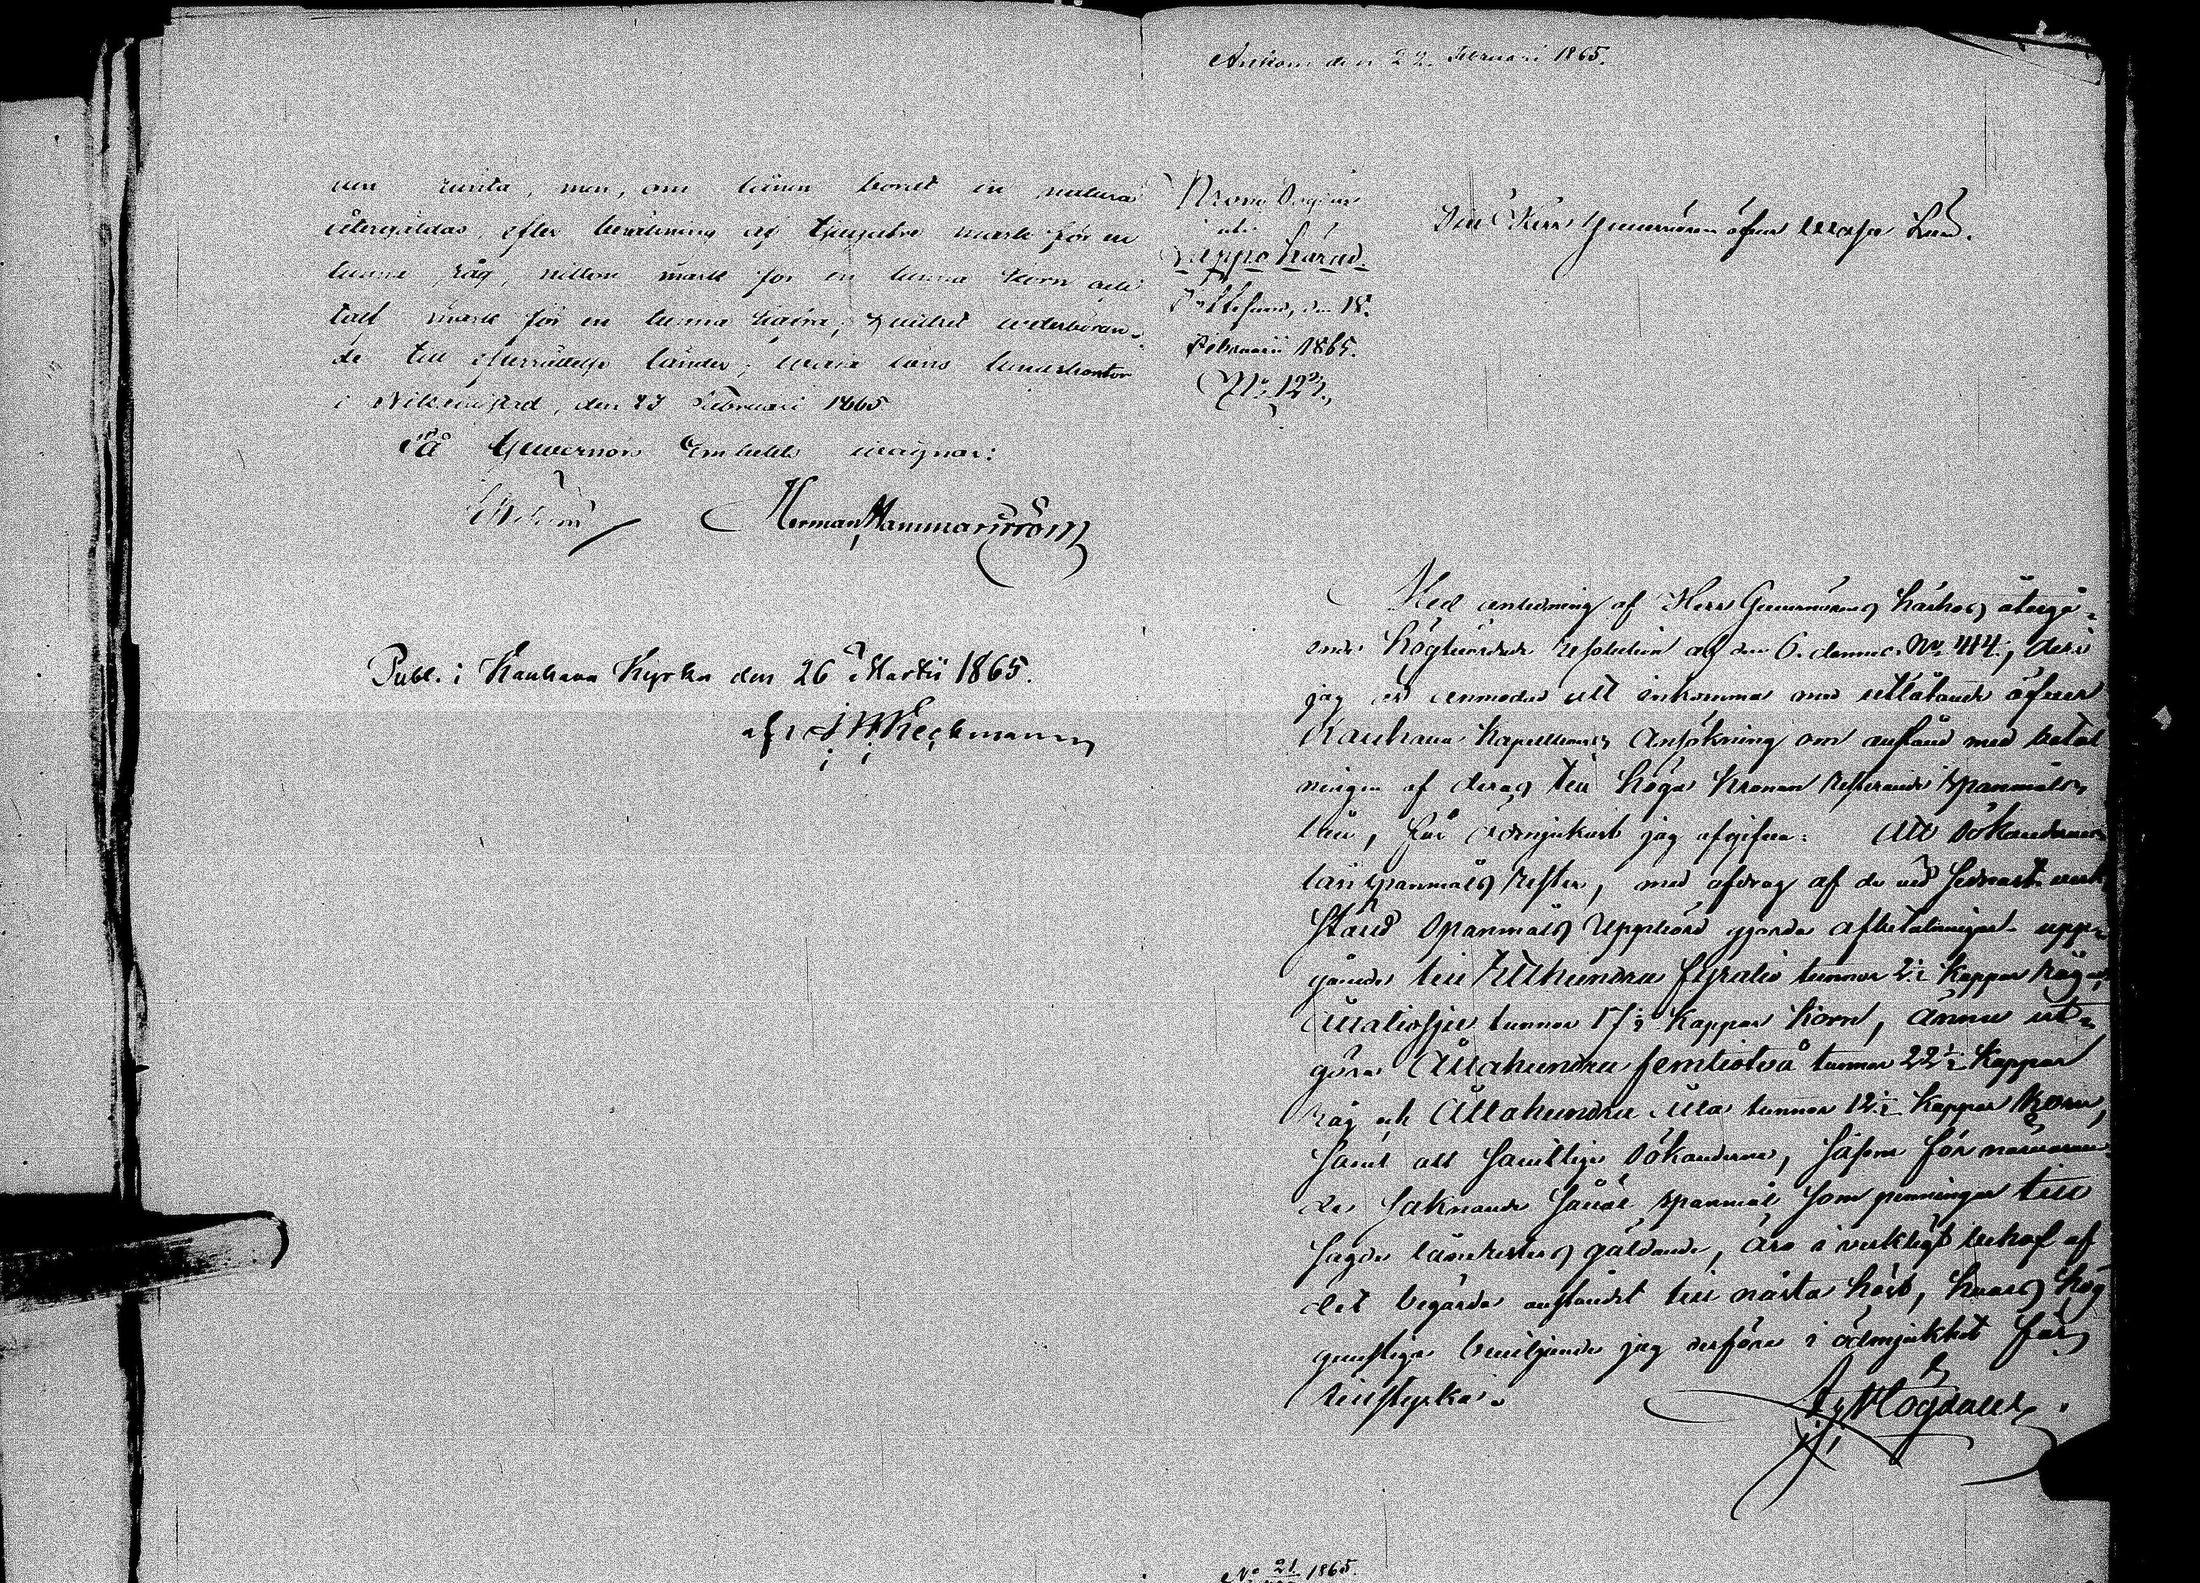 ran ränta, men, om lånen bordt in natura
återgäldas, efter beräkning af tjugutvå mark för en
tunna råg, nitton mark för en tunna korn och
tolf mark för en tunna hafra; hvilket wederböran-
de till efterrättelse länder; Wasa läns landskontor
i Nikolaistad, den 23 Februari 1865
På Guvernörs Embetets wägnar:
Herman Hammarström
Publ. i Kauhava Kyrka den 26 Martii 1865.
af J W Keckmann
Ankom den 22. Februari 1865.
Krono Fogden
uti
Lappo härad.
den 18.
Februarii 1865.
No. 123.
Till Herr Guvernören öfver Wasa Län.
Med anledning af Herr Guvernörens härhos återgå-
ende högtärade resolution af den 6. dennes No. 44, deri
jag är anmodad att inkomma med utlåtande öfver
Kauhava Kapellboers Ansökning om anstånd med betal
ningen af deras till höga Kronan resterande spanmåls
lån, får ödmjukast jag afgifva: Att Sökandernes
lånspanmåls rester, med afdrag af de vid sednast verk
ställd Spanmåls Uppbörd gjorda afbetalningar upp-
gående till Etthundra fyratio tunnor 2½ kappar råg och
Åttatiosju tunnor 17½ kappar korn, ännu ut-
göra Åttahundra femtiotvå tunnor 22½ kappar
råg och Åttahundra åtta tunnor 12½ kappar korn,
samt att samtlige Sökanderne, såsom för närvaran
de saknande såväl spanmål som penningar till
sagde låneresters gäldande, äro i verkligt behof af
det begärda anståndet till nästa höst, hvars hög
gunstiga beviljande jag derföre i ödmjukhet får
tillstyrka.
Högdahl.
No 21 1865.